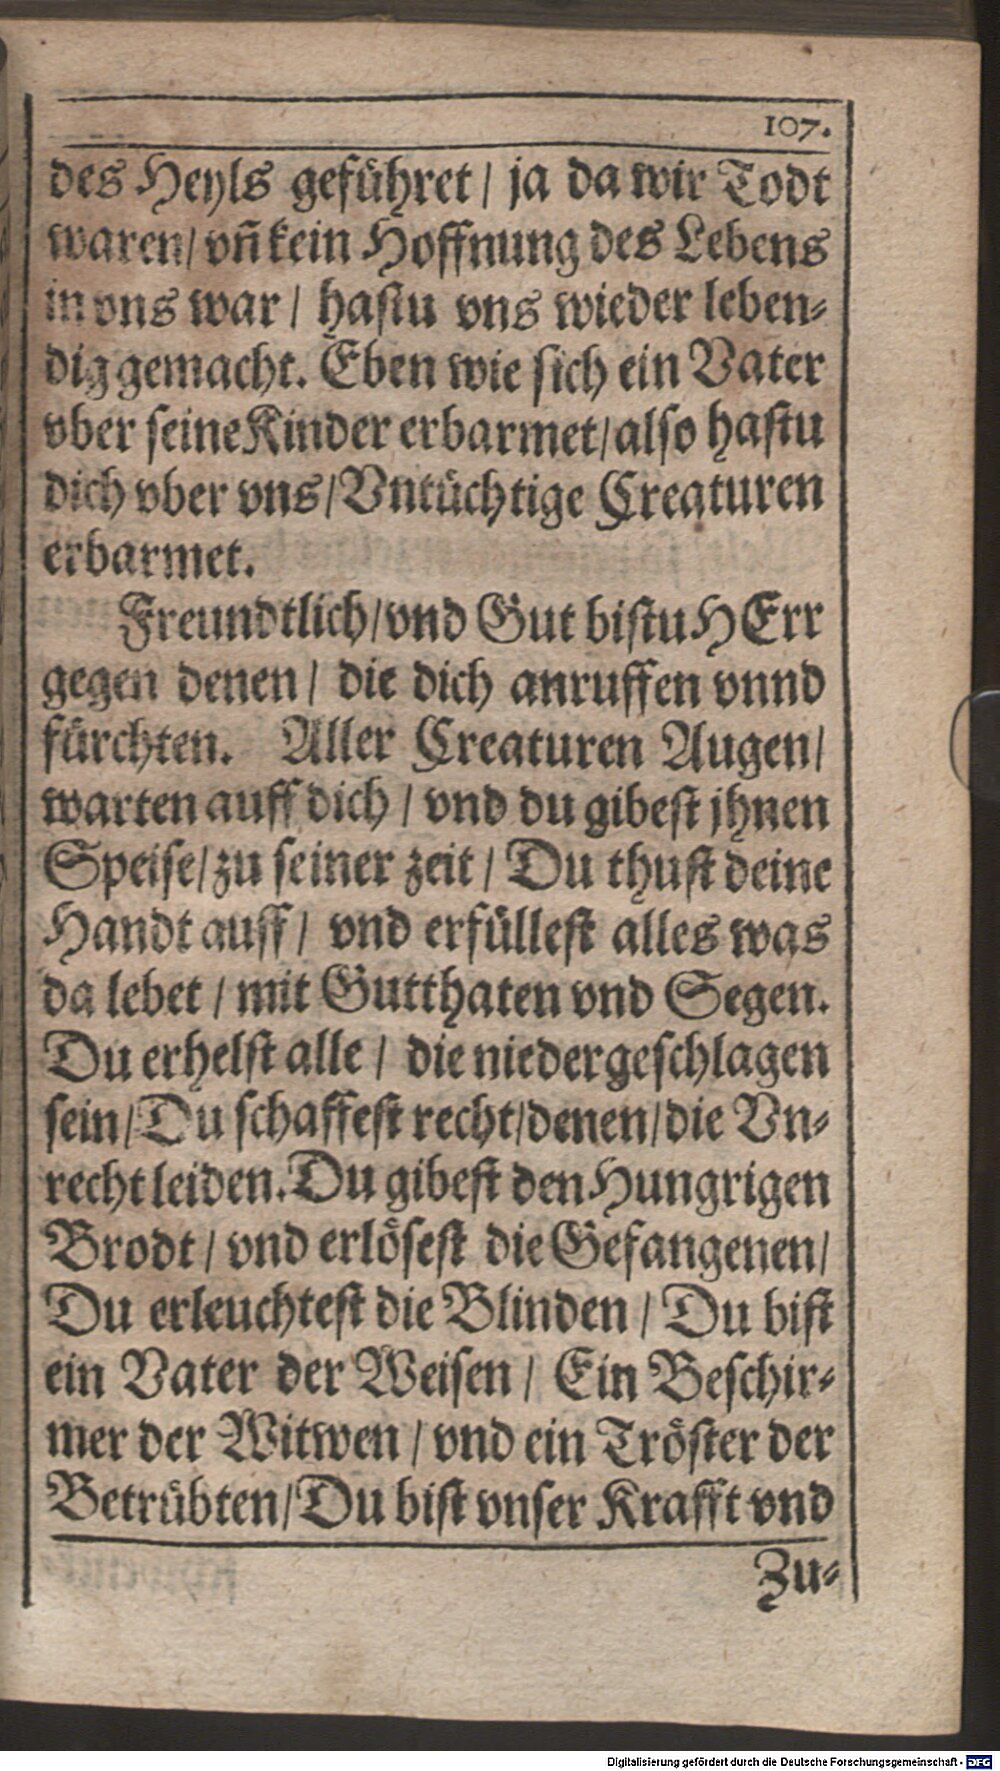 107.
des Heyls geführet / ja da wir Todt
waren / vñ kein Hoffnung des Lebens
in vns war / hastu vns wieder leben-
dig gemacht. Eben wie sich ein Vater
vber seine Kinder erbarmet / also hastu
dich vber vns / Vntüchtige Creaturen
erbarmet.
Freundtlich / vnd Gut bistu HErr
gegen denen / die dich anruffen vnnd
fürchten. Aller Creaturen Augen /
warten auff dich / vnd du gibest jhnen
Speise / zu seiner zeit / Du thust deine
Handt auff / vnd erfüllest alles was
da lebet / mit Gutthaten vnd Segen.
Du erhelst alle / die niedergeschlagen
sein / Du schaffest recht / denen / die Vn-
recht leiden. Du gibest den Hungrigen
Brodt / vnd erlösest die Gefangenen /
Du erleuchtest die Blinden / Du bist
ein Vater der Weisen / Ein Beschir-
mer der Witwen / vnd ein Tröster der
Betrübten / Du bist vnser Krafft vnd
Zu-
Digitalisierung gefördert durch die Deutsche Forschungsgemeinschaft - DFG